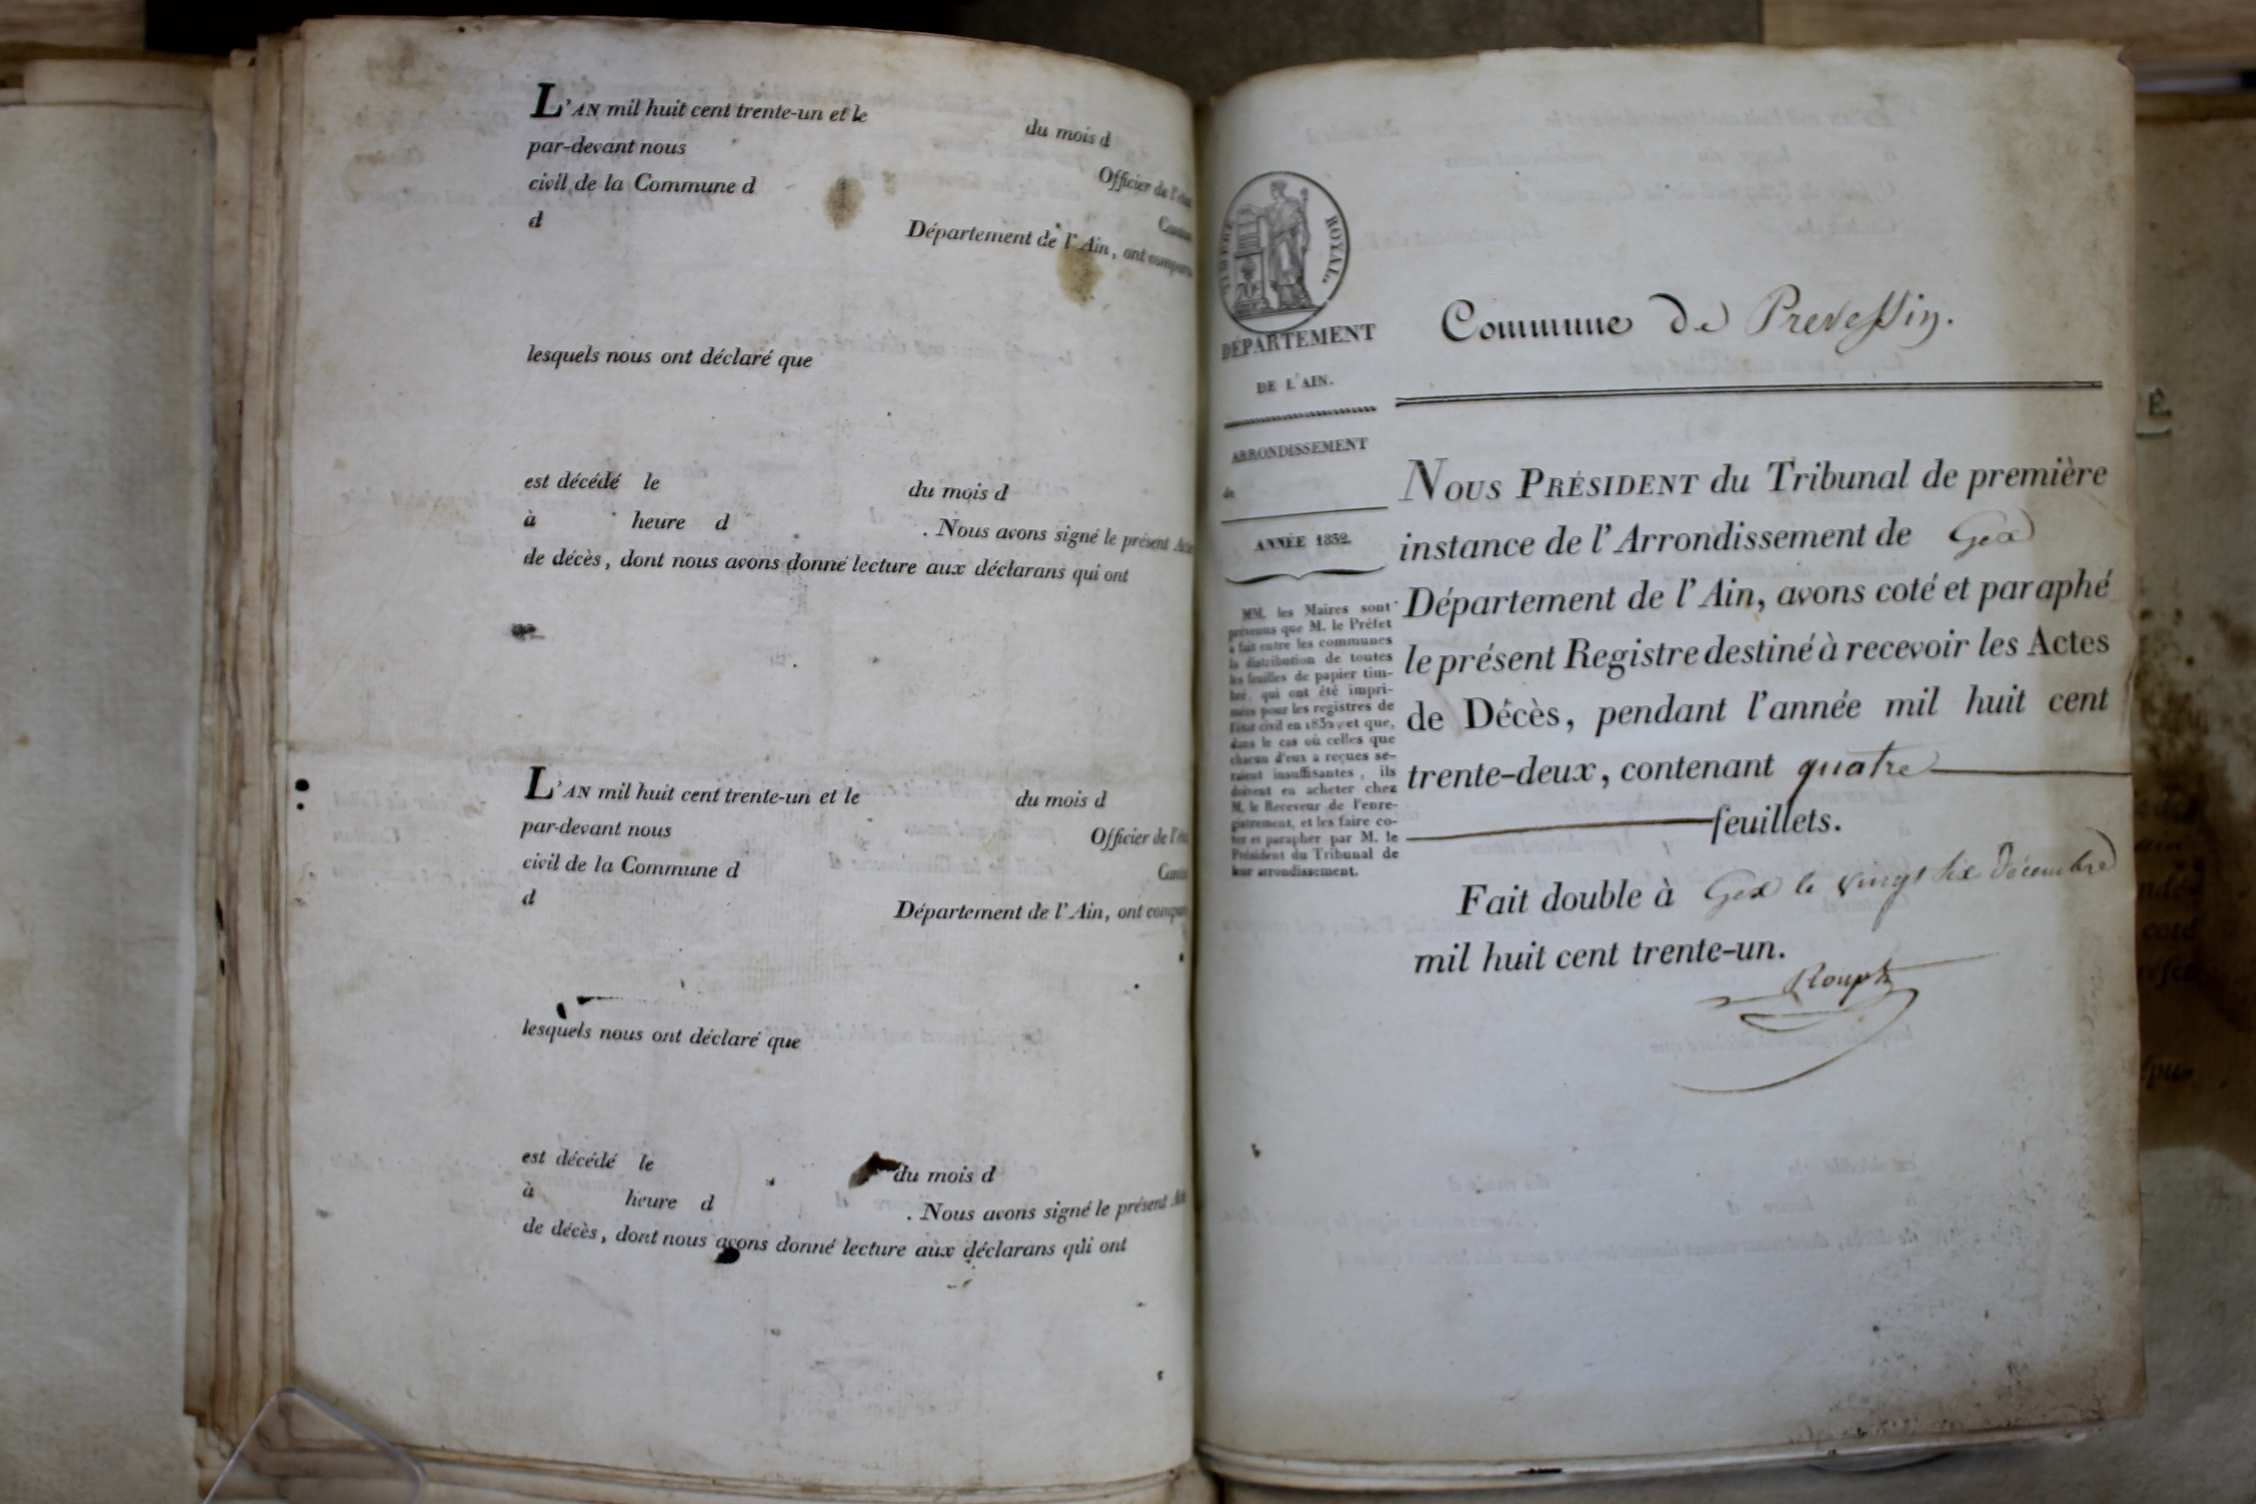 L'AN mil huit cent trente-un et le du mois d
par-devant nous Officier de l'état
civil de la Commune d Canton
d Département de l'Ain, ont comparu
lesquels nous ont déclaré que
est décédé le du mois d
à heure d . Nous avons signé le présent Acte
de décès, dont nous avons donné lecture aux déclarans qui ont
L'AN mil huit cent trente-un et le du mois d
par-devant nous Officier de l'état
civil de la Commune d Canton
d Département de l'Ain, ont comparu
lesquels nous ont déclaré que
est décédé le du mois d
à heure d . Nous avons signé le présent Acte
de décès, dont nous avons donné lecture aux déclarans qui ont
TIMBRE ROYAL.
DÉPARTEMENT
DE L'AIN.
ARRONDISSEMENT
de
ANNÉE 1832.
MM. les Maires sont
prévenus que M. le Préfet
a fait entre les communes
la distribution de toutes
les feuilles de papier tim-
bré, qui ont été impri-
mées pour les registres de
l'état civil en 1832, et que,
dans le cas où celles que
chacun d'eux a reçues se-
raient insuffisantes, ils
doivent en acheter chez
M. le Receveur de l'enre-
gistrement, et les faire co-
ter et parapher par M. le
Président du Tribunal de
leur arrondissement.
Commune de Prevessin.
NOUS PRÉSIDENT du Tribunal de première
instance de l'Arrondissement de Gex
Département de l'Ain, avons coté et paraphé
le présent Registre destiné à recevoir les Actes
de Décès, pendant l'année mil huit cent
trente-deux, contenant quatre
feuillets.
Fait double à Gex le vingt six Décembre
mil huit cent trente-un.